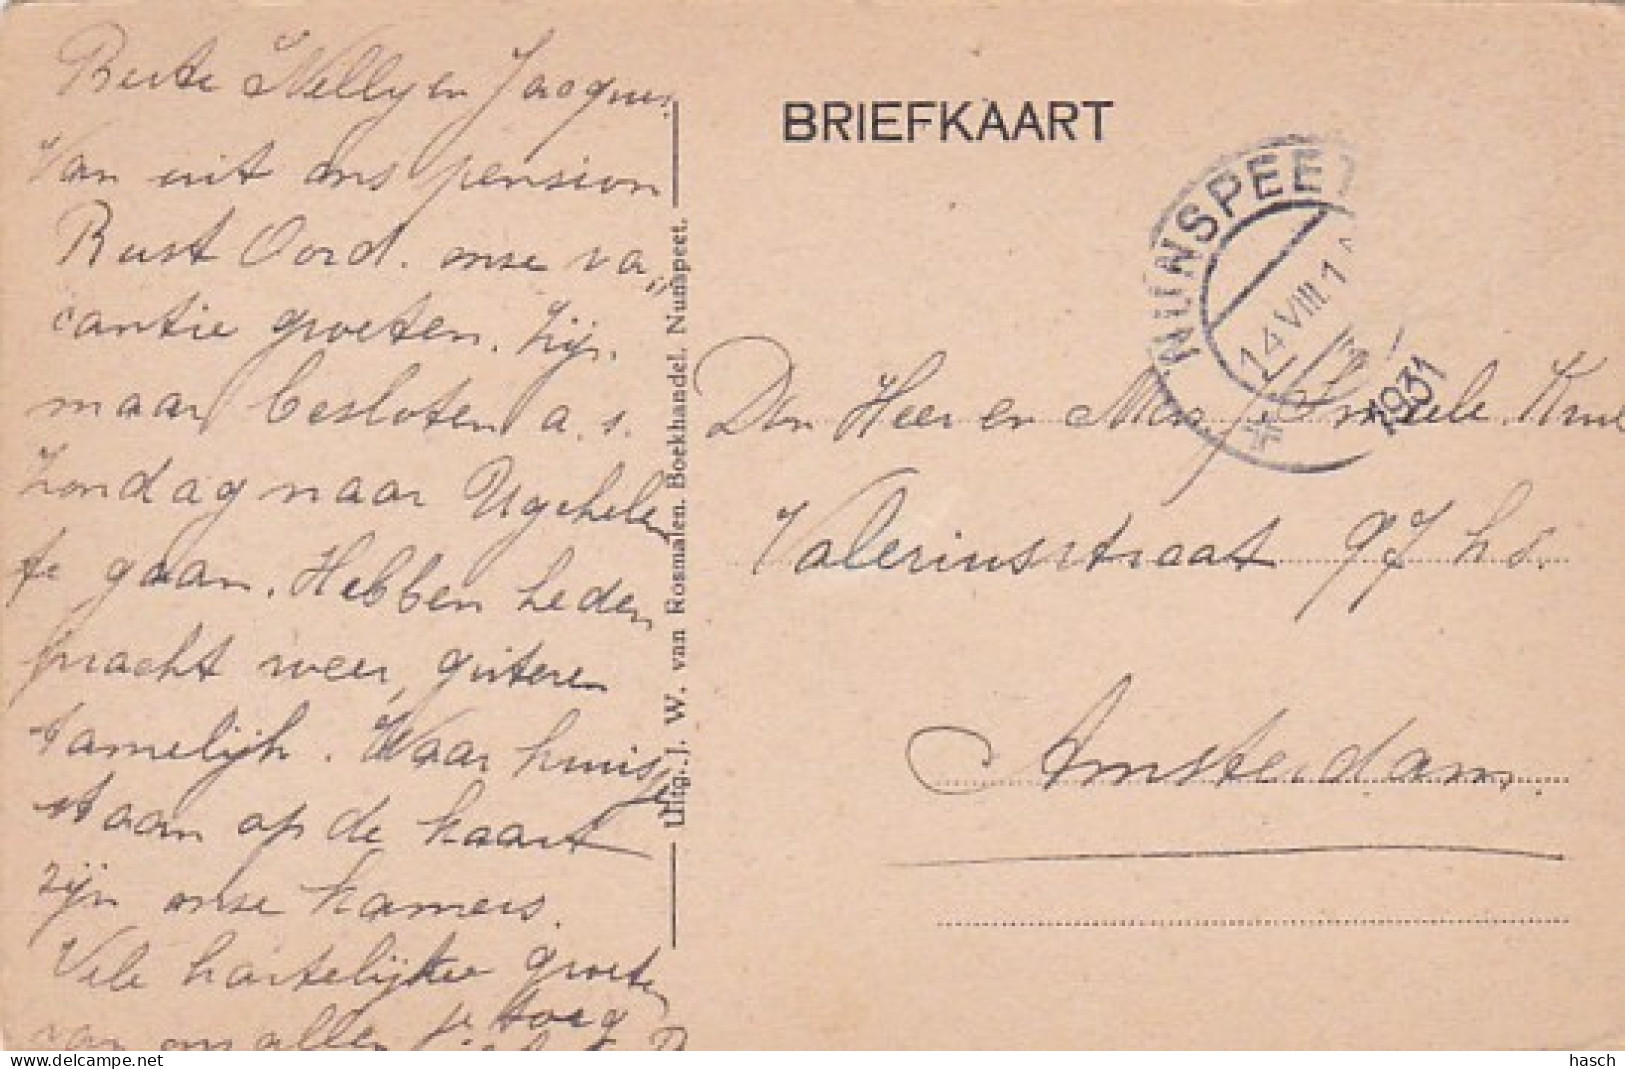 Beste Nelly en Jacques,
Van uit ons pension
Rust Oord. onse va„
cantie groeten. Zijn.
maar besloten a.s.
Zondag naar Ugchelen
te gaan. Hebben heden
pracht weer, gisteren
tamelijk. Waar kruisje
staan op de kaart
zijn onse kamers.
Vele hartelijke groeten
van ons allen
Uitg. J. W. van Rosmalen. Boekhandel. Nunspeet.
BRIEFKAART
NUNSPEET
14 VIII. 1
1931
Den Heer en Mev.
Valeriusstraat 97 hs.
Amsterdam
delcampe.net
hasch